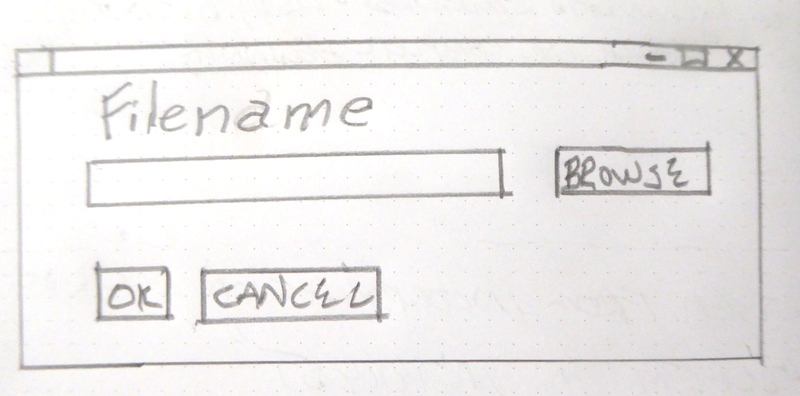 Filename
BROWSE
OK
CANCEL